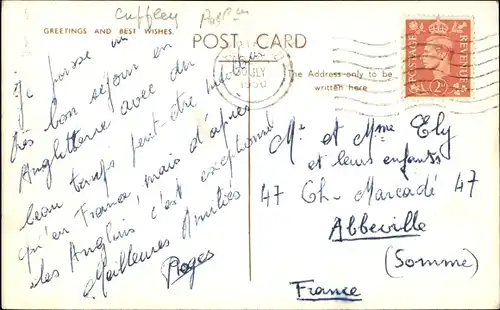 Cuffley
GREETINGS AND BEST WISHES.
POST CARD
JULY
1950
The Address only to be
written here
POSTAGE
REVENUE
2D
Je passe un
très bon séjour en
Angleterre avec du
beau temps peut-être meilleur
qu'en France, mais d'après
les Anglais c'est exceptionnel
Meilleures Amitiés
Roger
Mr et Mme Ely
et leurs enfants
47 Ch- Marcadé 47
Abbeville
(Somme)
France